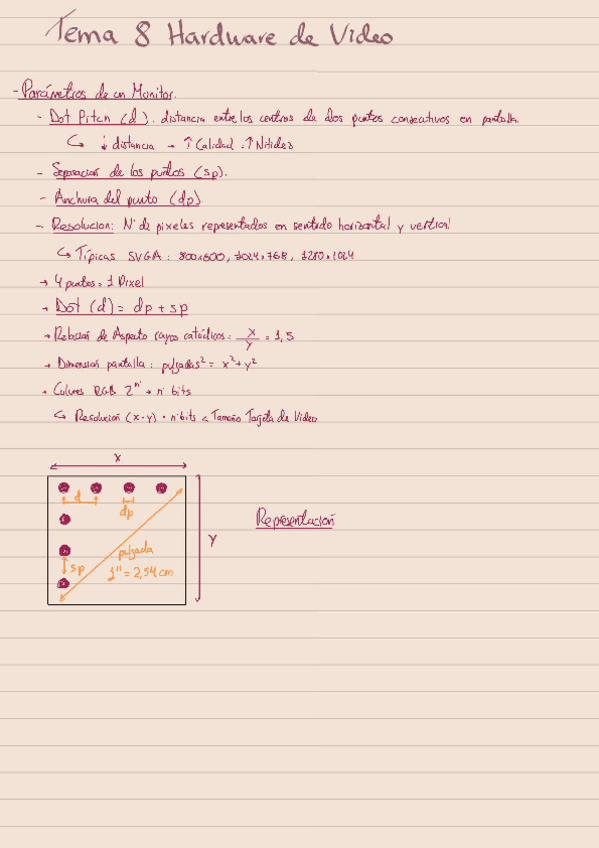 Tema 8 Hardware de Video
- Parámetros de un Monitor.
- Dot Pitch (d). distancia entre los centros de dos puntos consecutivos en pantalla
↳ ↓ distancia → ↑ Calidad. ↑ Nitidez
- Separación de los puntos (sp).
- Anchura del punto (dp)
- Resolución: Nº de pixeles representados en sentido horizontal y vertical
↳ Típicas SVGA: 800x600, 1024x768, 1280x1024
→ 4 puntos = 1 Pixel
→ Dot (d) = dp + sp
→ Relación de Aspecto rayos catódicos: x/y = 1,5
→ Dimensión pantalla: pulgadas² = x² + y²
→ Colores RGB 2ⁿ → n bits
↳ Resolución (x·y) · nºbits < Tamaño Tarjeta de Video
x
d
dp
Representación
y
pulgada
sp
1'' = 2,54 cm